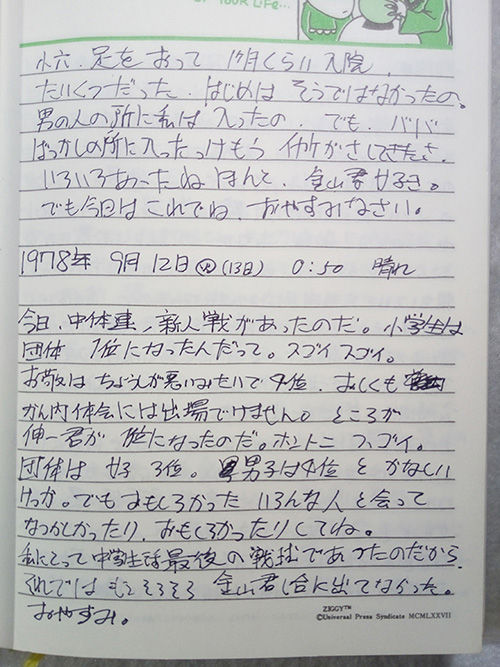 OF YOUR LIFE...
小六. 足をおって 1ヶ月くらい入院.
たいくつだった. はじめは そうではなかったの。
男の人の所に私は 入ったの. でも. ババ
ばっかしの所に入ったっけもう
いろいろあったね ほんと. 金山君 好き。
でも今日は これでね. おやすみなさい。
1978年 9月 12日 ㊋ (13日) 0:50 晴れ
今日、中体連、新人戦があったのだ。小学生は
団体 1位になったんだって。スゴイ スゴイ。
は ちょうしが悪いみたいで 4位. おしくも
かん内体会には出場できません。ところが
伸一君が 1位になったのだ。ホントニ スゴイ。
団体は 女子 3位。男子は4位 と かなしい
けっか。でもおもしろかった いろんな人と会って
なつかしかったり、おもしろかったりしてね。
私にとって 中学生は最後の戦であったのだから、
それでは もうそろそろ 金山君 試合に出てなかった。
おやすみ。
ZIGGY™
©Universal Press Syndicate MCMLXXVII